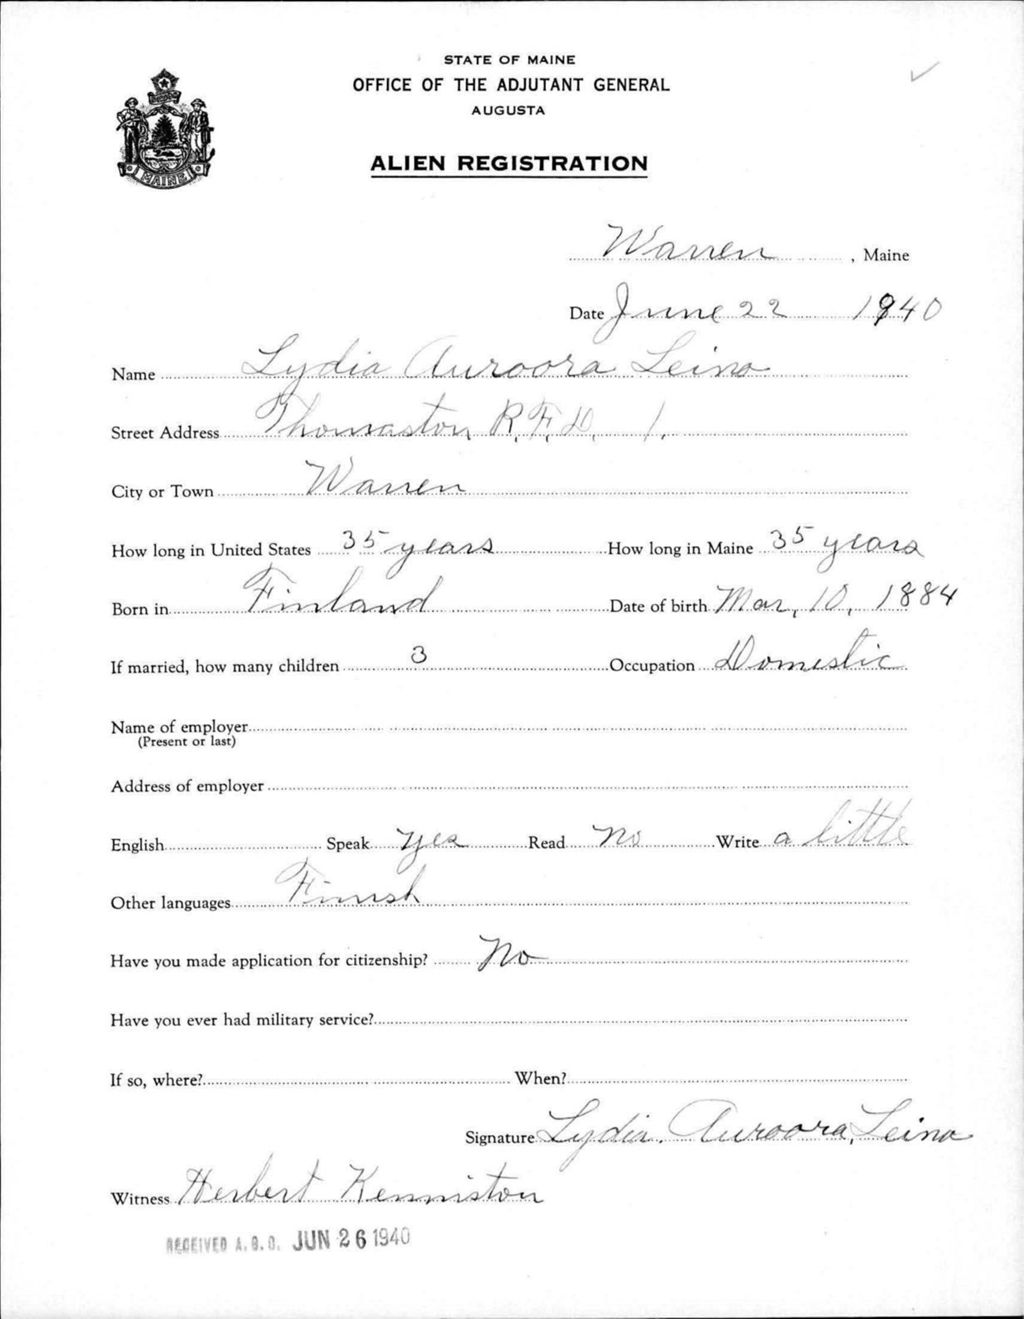 STATE OF MAINE
OFFICE OF THE ADJUTANT GENERAL
AUGUSTA
ALIEN REGISTRATION
MAINE
Warren, Maine
Date June 22 1940
Name Lydia Auroora Leino
Street Address Thomaston R.F.D. 1.
City or Town Warren
How long in United States 35 years How long in Maine 35 years
Born in Finland Date of birth Mar, 10, 1884
If married, how many children 3 Occupation Domestic
Name of employer
(Present or last)
Address of employer
English Speak yes Read No Write a little
Other languages Finnish
Have you made application for citizenship? No
Have you ever had military service?
If so, where? When?
Signature Lydia. Auroora, Leino
Witness Herbert Kenniston
RECEIVED A.G.O. JUN 26 1940